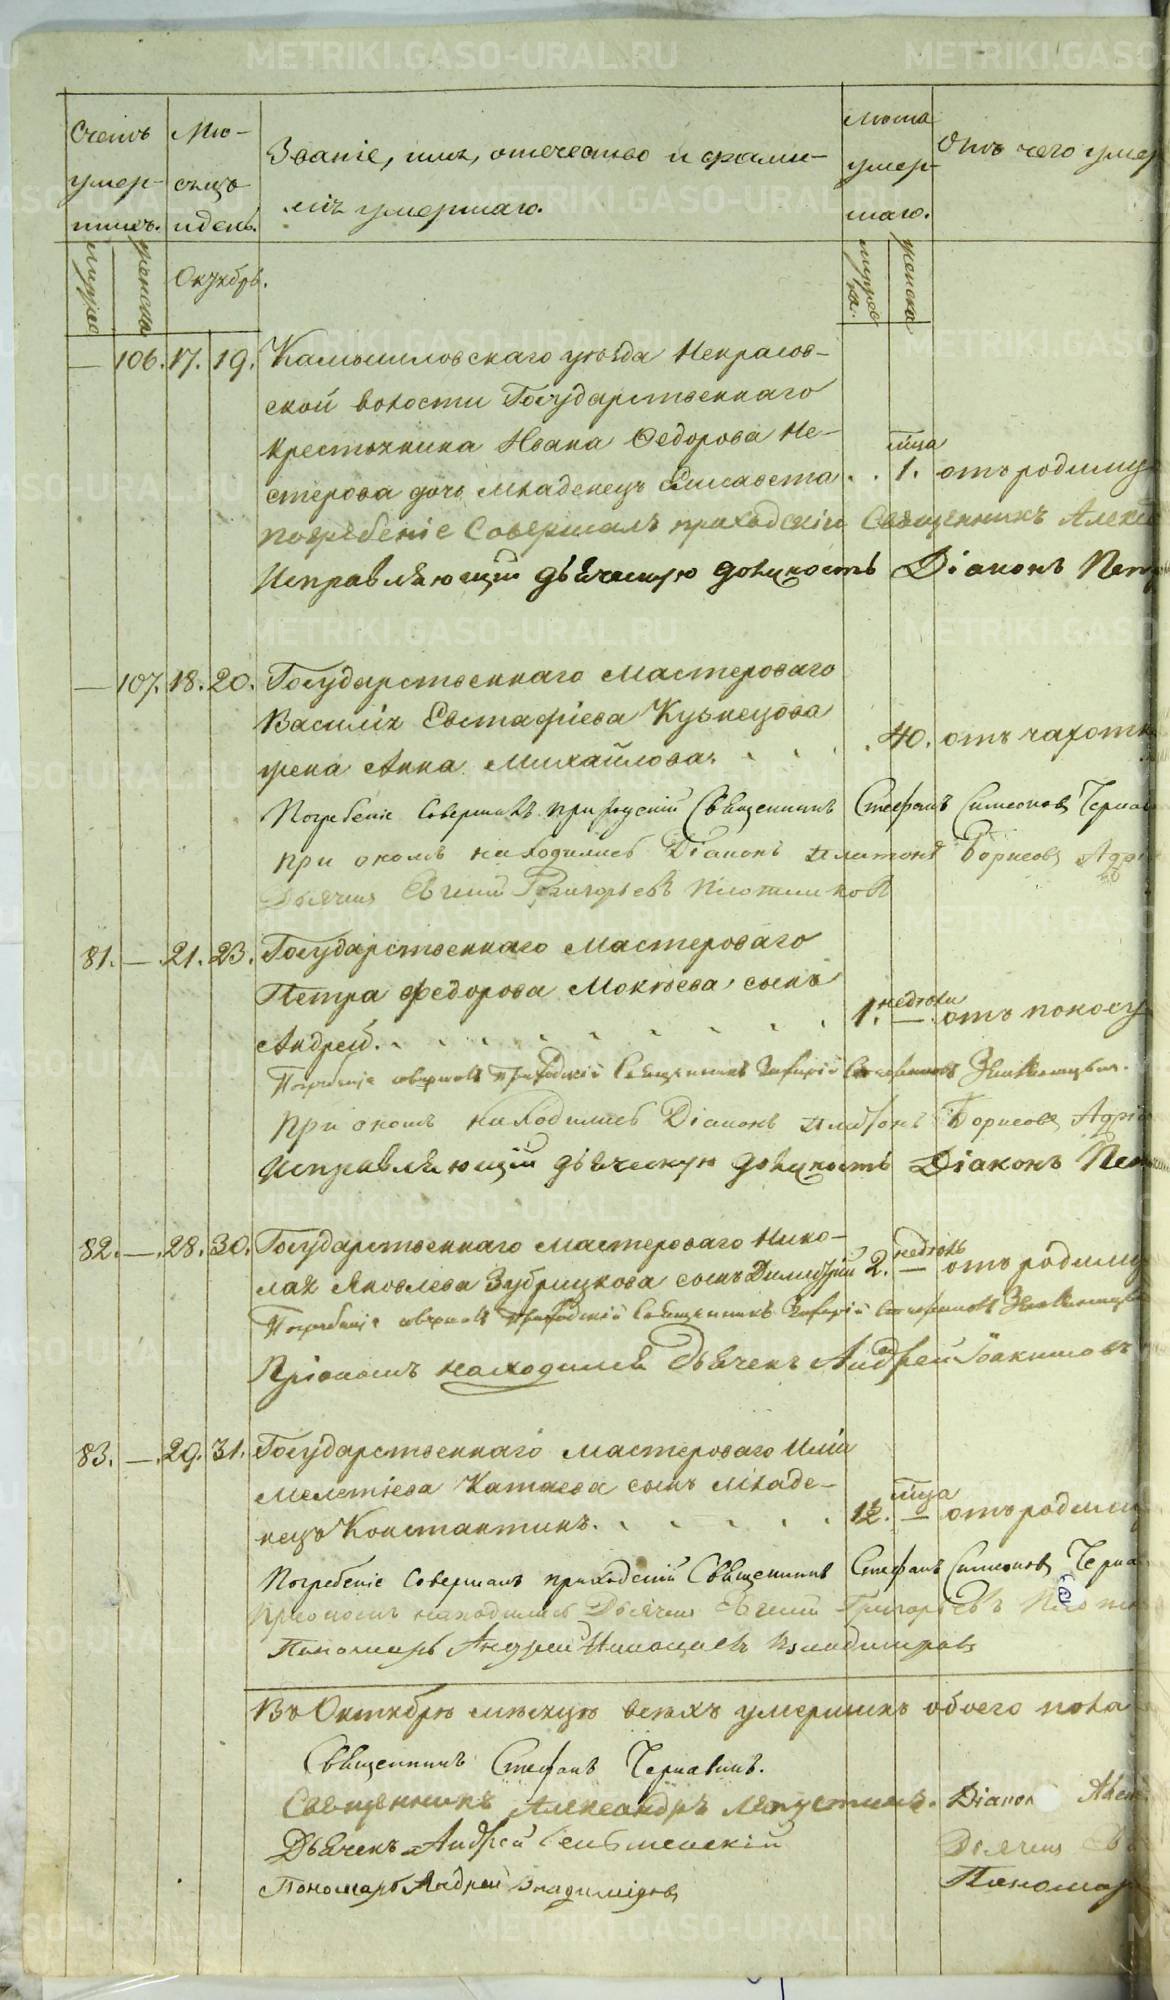 METRIKI.GASO-URAL.RU
Счетъ умер-шихъ.
Мѣ-сяцъ и день.
Званіе, имя, отечество и фами-
лія умершаго.
лѣта умер-шаго.
Отъ чего умер
мужеска
женска
Октябрь.
мужеска.
женска
— 106. 17. 19. Камышловскаго уѣзда Некрасов-
ской волости Государственнаго
крестьянина Ивана Ѳедорова Не-
стерова дочь младенецъ Елисавета . . 1. мца отъ родимц
Погребеніе Совершалъ приходскій Священникъ Алекс
Исправляющій дьяческую должность Діаконъ Пет
— 107. 18. 20. Государственнаго мастероваго
Василія Евстафіева Кузнецова
жена Анна Михайлова. . . . 40. отъ чахотк
Погребеніе Совершалъ приходскій Священникъ Стефанъ Симеоновъ Черна
при ономъ находились Діаконъ Платонъ Борисовъ Адрі
Дьячекъ Евгеній Григорьевъ Плотниковъ
81. — 21. 23. Государственнаго Мастероваго
Петра Федорова Мокѣева сынъ
Андрей. . . . . . . . 1. недѣли — отъ поносу
Погребеніе совершалъ Приходскій Священникъ
При ономъ находились Діаконъ Платонъ Борисовъ Адрі
Исправляющій дьяческую должность Діаконъ Пет
82. — 28. 30. Государственнаго мастероваго Нико-
лая Яковлева Зубрицкова сынъ Димитрій 2. недѣль — отъ родимц
Погребеніе совершалъ Приходскій Священникъ
При ономъ находился Дьячекъ Андрей Іоакимовъ
83. — 29. 31. Государственнаго мастероваго Иліи
Мелетіева Катаева сынъ младе-
нецъ Константинъ. . . . . . 12. мца — отъ родимц
Погребеніе Совершалъ приходскій Священникъ Стефанъ Симеоновъ Черна
При ономъ находились Дьячекъ Евгеній Григорьевъ Плотн
Пономарь Андрей Николаевъ Владимировъ
Въ Октябрѣ мѣсяцѣ всѣхъ умершихъ обоего пола
Священникъ Стефанъ Чернавинъ.
Священникъ Александръ Діакон
Дьячекъ Андрей Дьячекъ Ев
Пономарь Андрей Владиміровъ Пономар